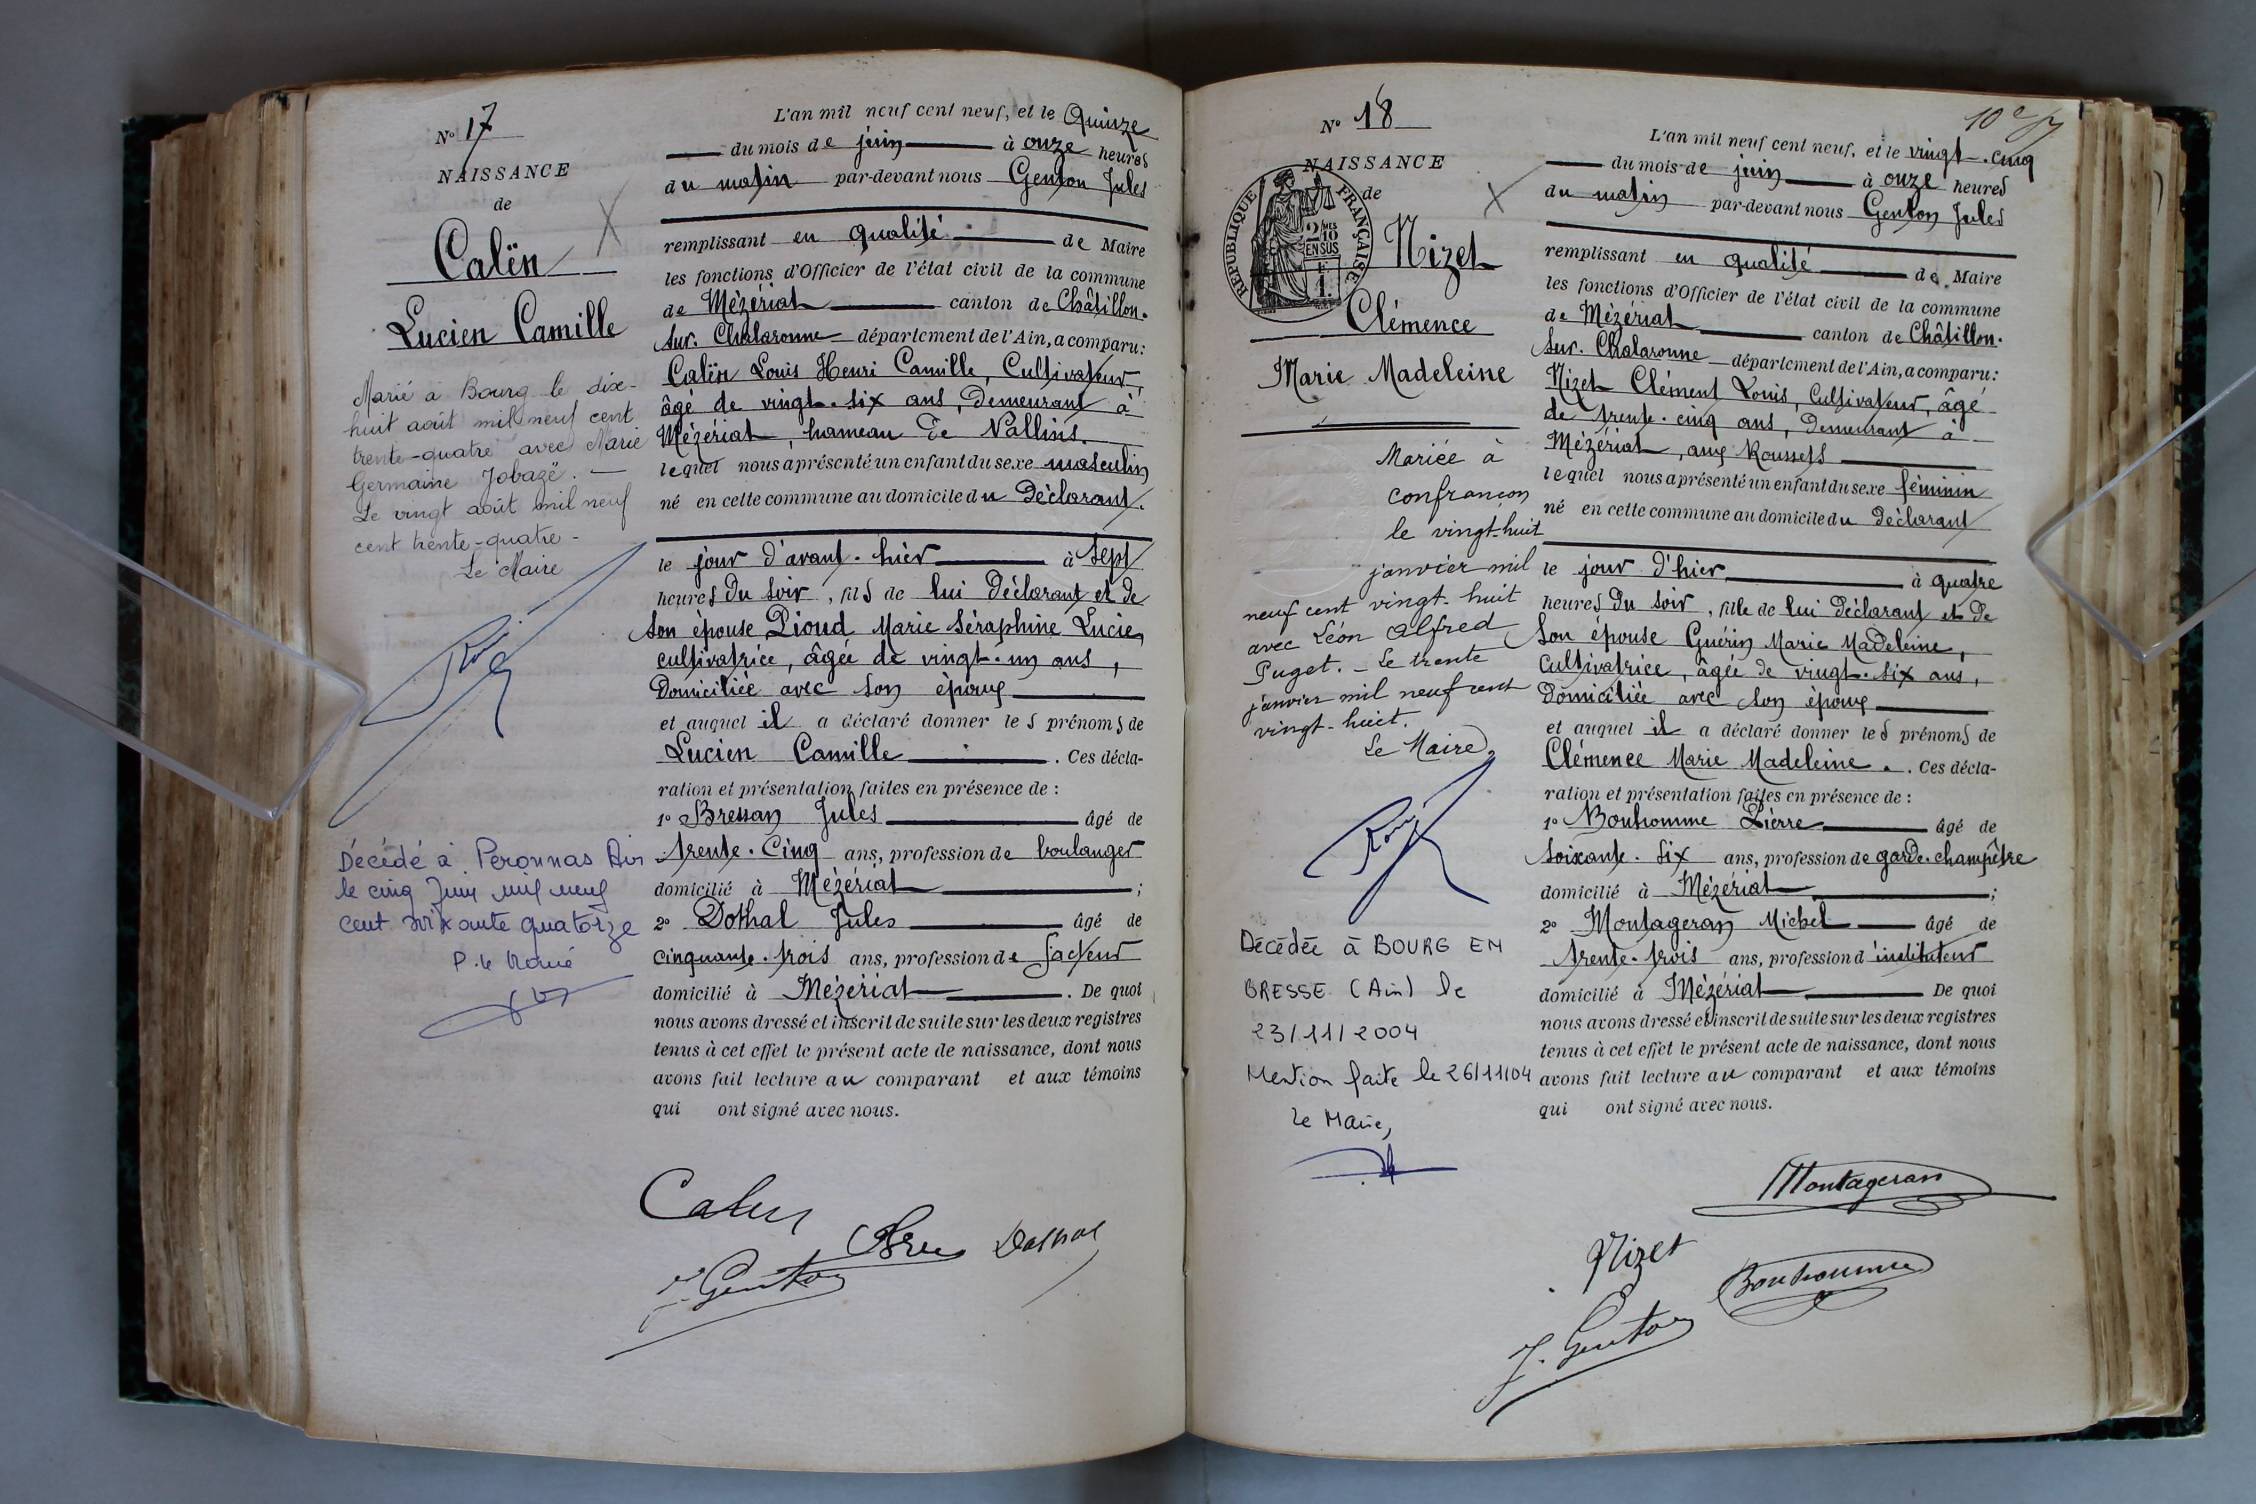 N° 17
NAISSANCE
de
Calën
Lucien Camille
Marié à Bourg le dix-
huit août mil neuf cent
trente-quatre avec Marie
Germaine Jobazé. —
Le vingt août mil neuf
cent trente-quatre -
Le Maire
Décédé à Peronnas Ain
le cinq Juin mil neuf
cent soixante quatorze
P. le Maire
L'an mil neuf cent neuf, et le Quinze
du mois de juin à onze heures
du matin par-devant nous Genton Jules
remplissant en qualité de Maire
les fonctions d'Officier de l'état civil de la commune
de Mézériat canton de Châtillon.
sur. Chalaronne département de l'Ain, a comparu:
Calën Louis Henri Camille, Cultivateur,
âgé de vingt. six ans, Demeurant à
Mézériat, hameau de Vallins.
lequel nous a présenté un enfant du sexe masculin
né en cette commune au domicile du Déclarant.
le jour d'avant. hier à sept
heures Du soir, fils de lui Déclarant et de
son épouse Pioud Marie Séraphine Lucie,
cultivatrice, âgée de vingt. un ans,
Domiciliée avec son époux
et auquel il a déclaré donner les prénoms de
Lucien Camille. Ces décla-
ration et présentation faites en présence de :
1° Bressan Jules âgé de
trente. Cinq ans, profession de boulanger
domicilié à Mézériat ;
2° Dothal Jules âgé de
cinquante. trois ans, profession de facteur
domicilié à Mézériat. De quoi
nous avons dressé et inscrit de suite sur les deux registres
tenus à cet effet le présent acte de naissance, dont nous
avons fait lecture au comparant et aux témoins
qui ont signé avec nous.
Calen
Dothal
J. Genton
N° 18
10e/7
NAISSANCE
de
RÉPUBLIQUE FRANÇAISE
2/10 MES
EN SUS
1 F.
Nizet
Clémence
Marie Madeleine
Mariée à
Confrançon
le vingt-huit
janvier mil
neuf cent vingt-huit
avec Léon Alfred
Puget. - Le trente
janvier mil neuf cent
vingt-huit.
Le Maire,
Décédée à BOURG EN
BRESSE (Ain) le
23/11/2004
Mention faite le 26/11/04
le Maire,
L'an mil neuf cent neuf, et le vingt. cinq
du mois de juin à onze heures
du matin par-devant nous Genton Jules
remplissant en qualité de Maire
les fonctions d'Officier de l'état civil de la commune
de Mézériat canton de Châtillon.
sur. Chalaronne département de l'Ain, a comparu:
Nizet Clément Louis, Cultivateur, âgé
de trente. cinq ans, Demeurant à
Mézériat, aux Roussets
lequel nous a présenté un enfant du sexe féminin
né en cette commune au domicile du Déclarant
le jour d'hier à quatre
heures Du soir, fille de lui Déclarant et de
son épouse Guérin Marie Madeleine,
Cultivatrice, âgée de vingt. six ans,
Domiciliée avec son époux
et auquel il a déclaré donner les prénoms de
Clémence Marie Madeleine. Ces décla-
ration et présentation faites en présence de :
1° Bonhomme Pierre âgé de
soixante. six ans, profession de garde. champêtre
domicilié à Mézériat ;
2° Montageran Michel âgé de
trente. trois ans, profession d'instituteur
domicilié à Mézériat De quoi
nous avons dressé et inscrit de suite sur les deux registres
tenus à cet effet le présent acte de naissance, dont nous
avons fait lecture au comparant et aux témoins
qui ont signé avec nous.
Montageran
Nizet
Bonhomme
J. Genton